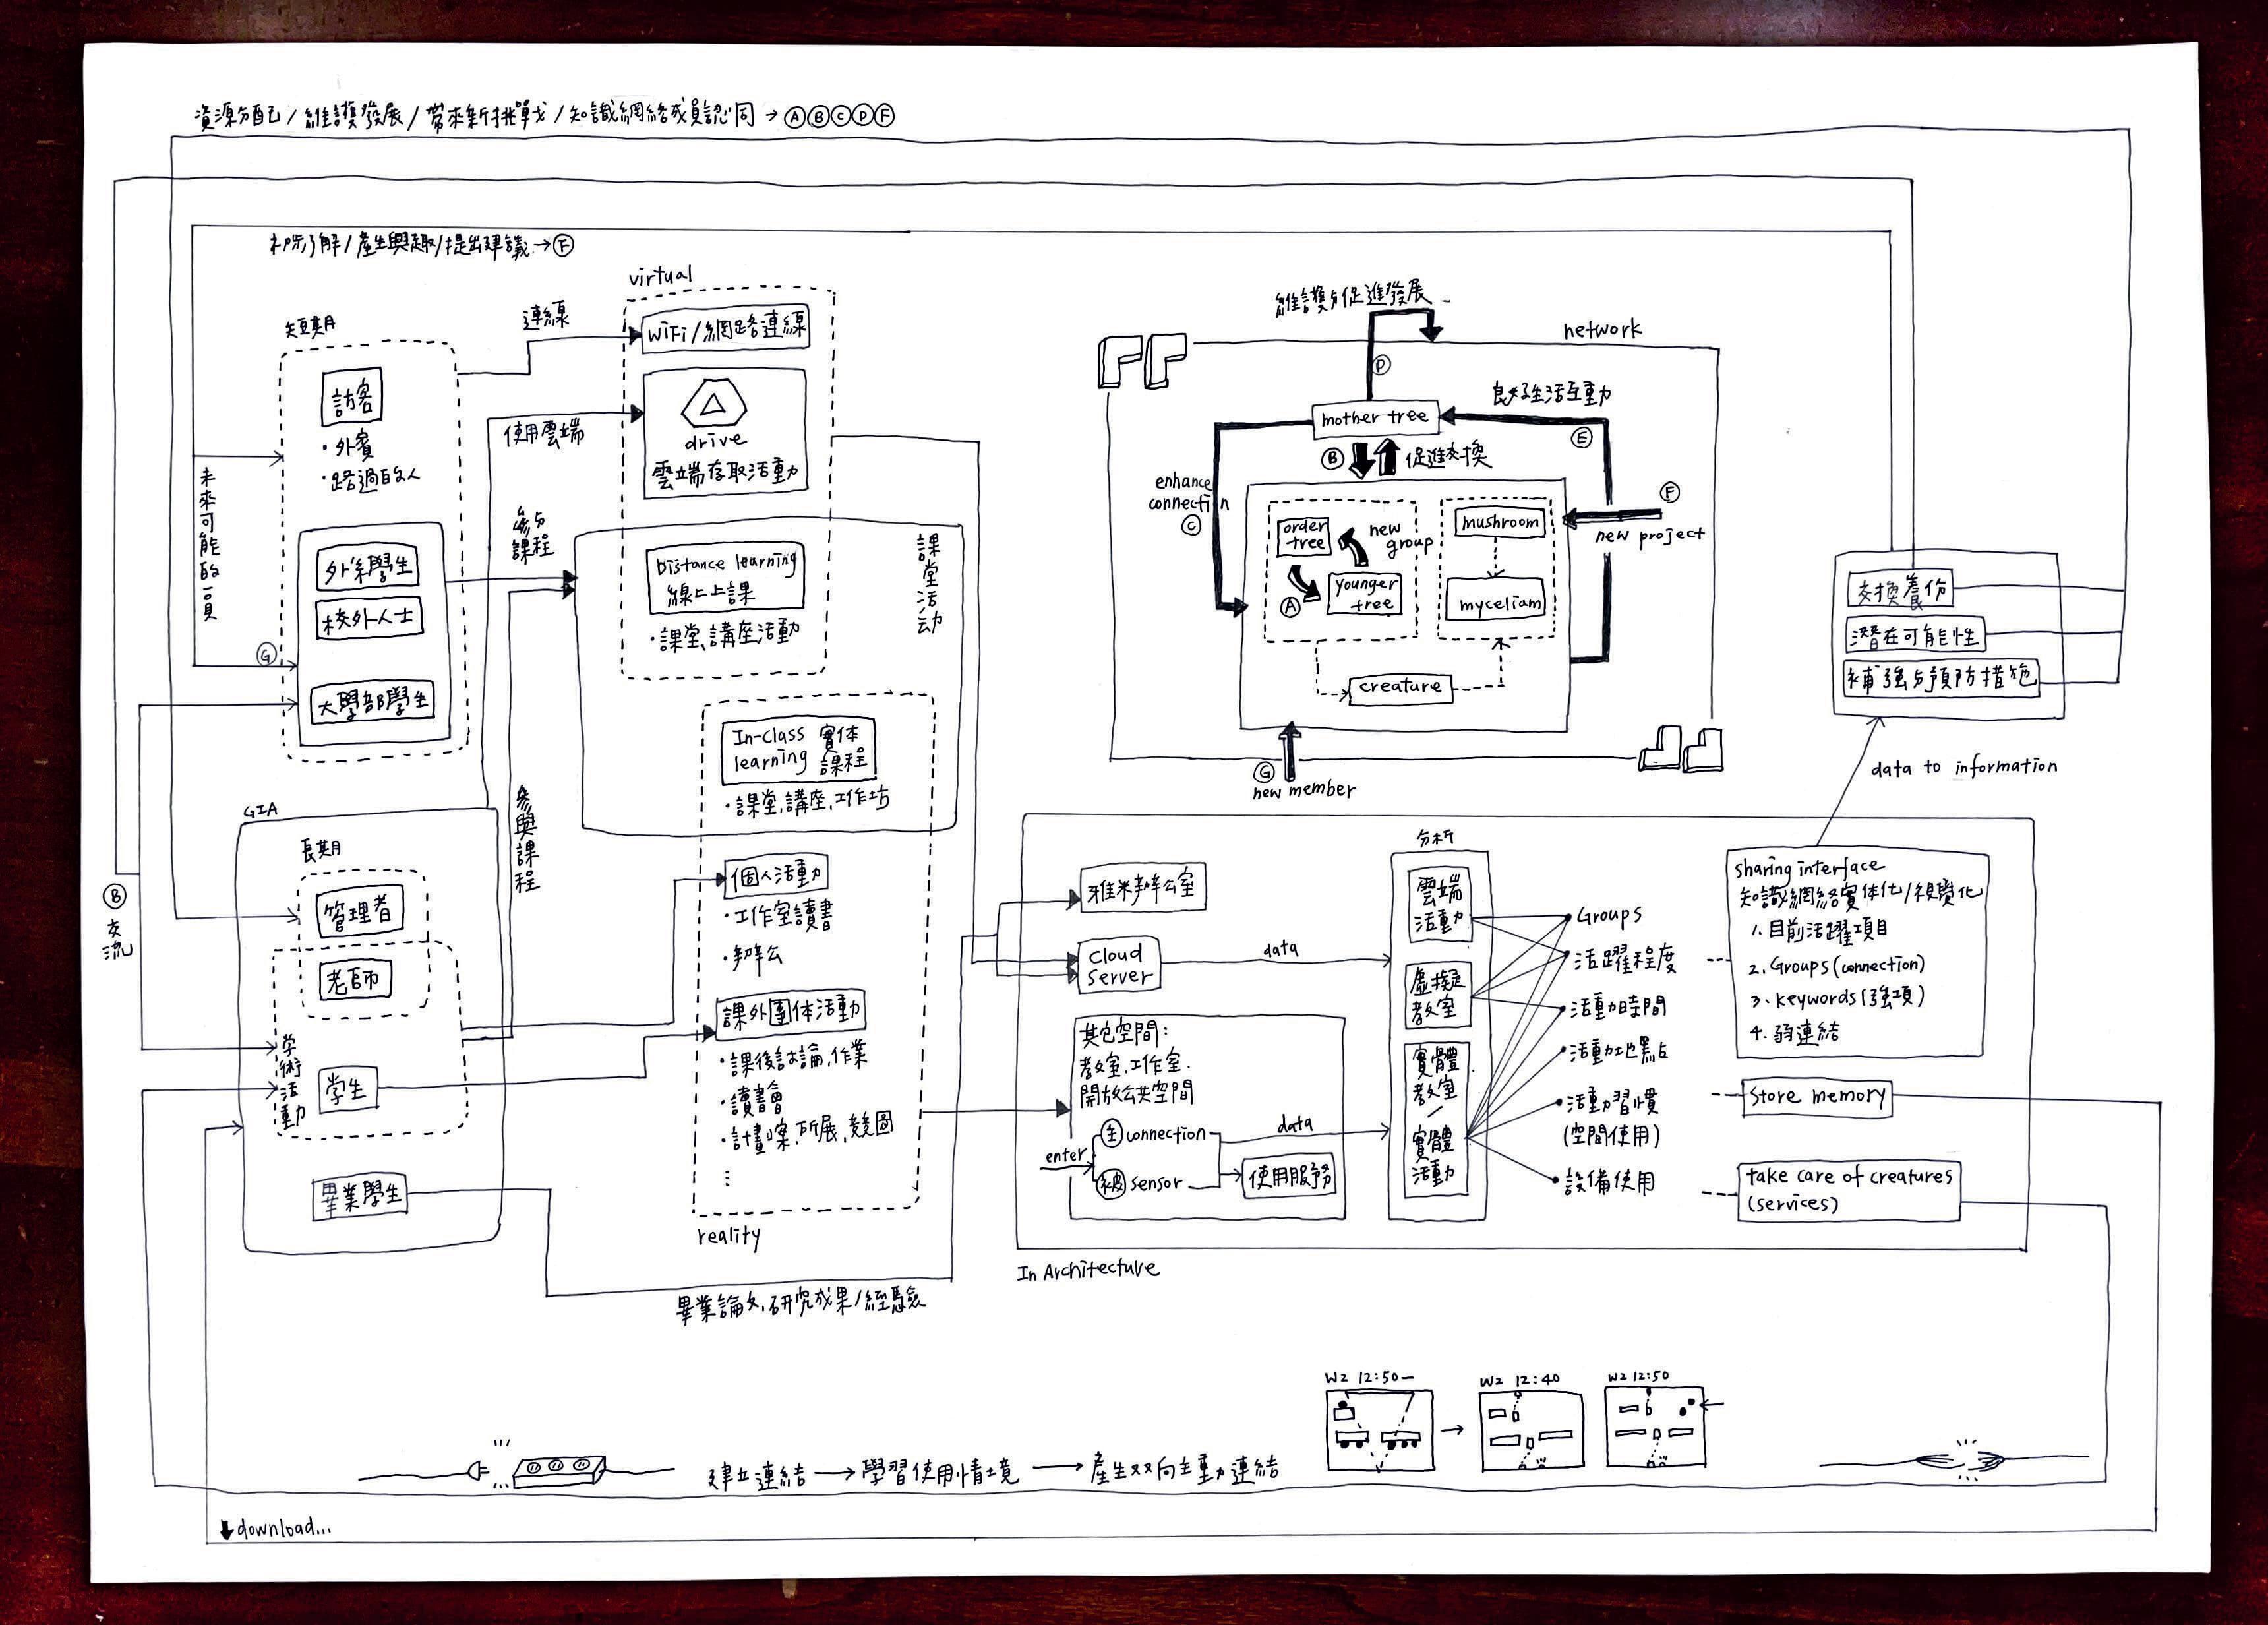 資源分配/維護發展/帶來新挑戰/知識網絡成員認同→ⒶⒷⒸⒹⒻ
初步了解/產生興趣/提出建議→Ⓕ
短期
訪客
・外賓
・路過的人
外系學生
校外人士
大學部學生
未來可能的一員
Ⓖ
連線
使用雲端
參与課程
參與課程
virtual
WiFi/網路連線
drive
雲端存取活動
Distance learning
線上上課
・課堂、講座活動
課堂活动
In-class 實体
learning 課程
・課堂,講座,工作坊
個人活動
・工作室讀書
・辦公
課外團体活動
・課後討論,作業
・讀書會
・計畫案,所展,競圖
⋮
reality
GIA
長期
管理者
老師
学生
学術活動
畢業學生
Ⓑ
交流
畢業論文,研究成果/經驗
維護与促進發展
network
Ⓓ
mother tree
良好生活互動
Ⓔ
Ⓑ
促進交換
enhance
connection
Ⓒ
order
tree
new
group
Ⓐ
younger
tree
mushroom
myceliam
creature
Ⓕ
new project
Ⓖ
new member
交換養份
潛在可能性
補強与預防措施
data to information
雅米辦公室
cloud
server
data
其它空間:
教室,工作室.
開放公共空間
enter
主 connection
被 sensor
data
使用服務
分析
雲端
活動
虛擬
教室
實體
教室
/
實體
活動
Groups
活躍程度
活動時間
活動地點
活動習慣
(空間使用)
設備使用
sharing interface
知識網絡實体化/視覺化
1. 目前活躍項目
2. Groups (connection)
3. keywords (強項)
4. 弱連結
store memory
take care of creatures
(services)
In Architecture
建立連結→學習使用情境→產生双向主動連結
W2 12:50—
W2 12:40
W2 12:50
download...